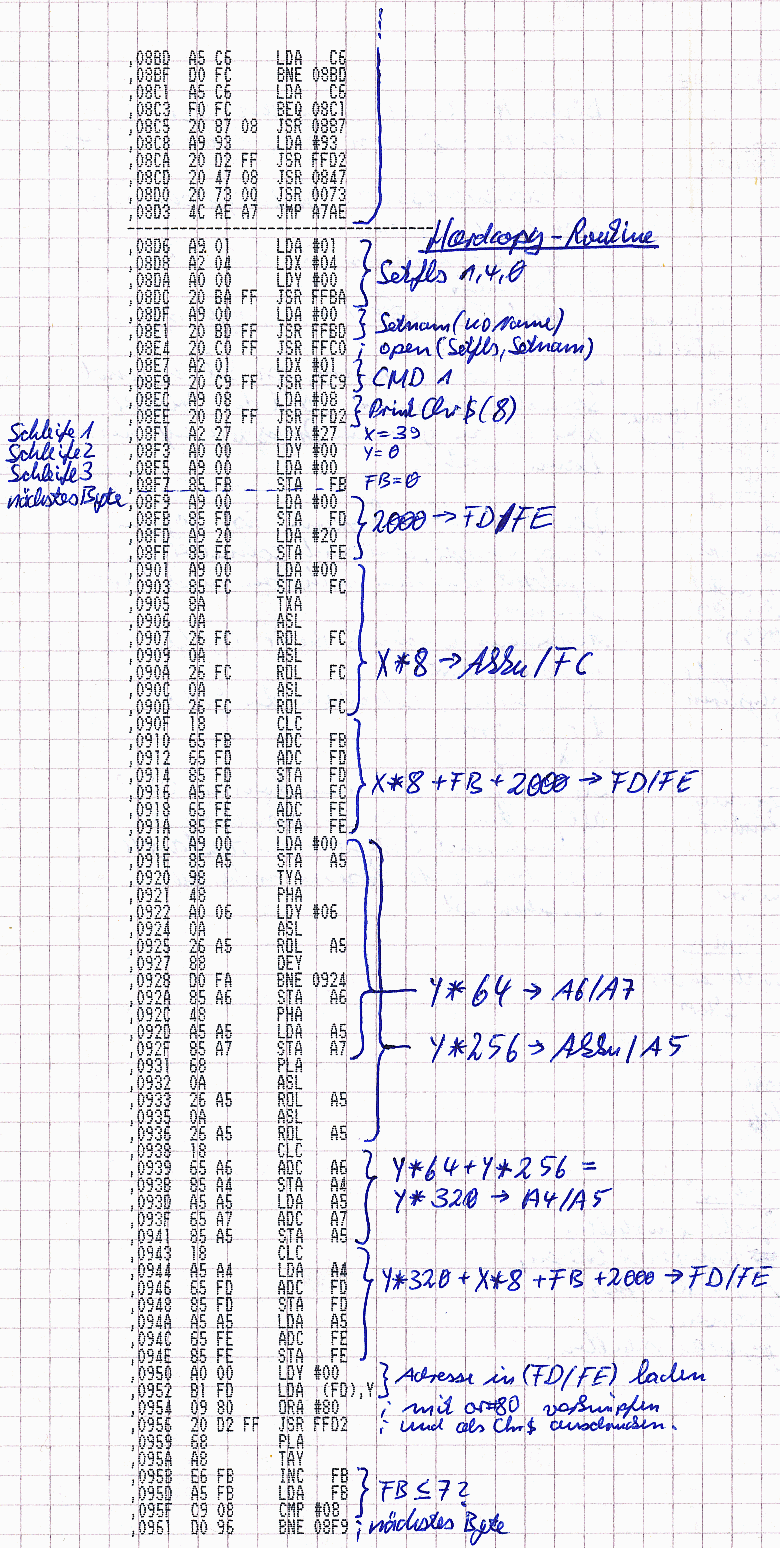 ,08BD A5 C6 LDA C6
,08BF D0 FC BNE 08BD
,08C1 A5 C6 LDA C6
,08C3 F0 FC BEQ 08C1
,08C5 20 87 08 JSR 0887
,08C8 A9 93 LDA #93
,08CA 20 D2 FF JSR FFD2
,08CD 20 47 08 JSR 0847
,08D0 20 73 00 JSR 0073
,08D3 4C AE A7 JMP A7AE
Hardcopy-Routine
,08D6 A9 01 LDA #01
,08D8 A2 04 LDX #04 Setfls 1,4,0
,08DA A0 00 LDY #00
,08DC 20 BA FF JSR FFBA
,08DF A9 00 LDA #00 Setnam (no Name)
,08E1 20 BD FF JSR FFBD
,08E4 20 C0 FF JSR FFC0 ; open (Setfls, Setnam)
,08E7 A2 01 LDX #01 CMD 1
,08E9 20 C9 FF JSR FFC9
,08EC A9 08 LDA #08 Print Chr$(8)
,08EE 20 D2 FF JSR FFD2
Schleife 1 ,08F1 A2 27 LDX #27 X=39
Schleife 2 ,08F3 A0 00 LDY #00 Y=0
Schleife 3 ,08F5 A9 00 LDA #00
,08F7 85 FB STA FB FB=0
nächstes Byte ,08F9 A9 00 LDA #00
,08FB 85 FD STA FD 2000 → FD/FE
,08FD A9 20 LDA #20
,08FF 85 FE STA FE
,0901 A9 00 LDA #00
,0903 85 FC STA FC
,0905 8A TXA
,0906 0A ASL
,0907 26 FC ROL FC
,0909 0A ASL
,090A 26 FC ROL FC X*8 → Akku/FC
,090C 0A ASL
,090D 26 FC ROL FC
,090F 18 CLC
,0910 65 FB ADC FB
,0912 65 FD ADC FD
,0914 85 FD STA FD
,0916 A5 FC LDA FC X*8 + FB + 2000 → FD/FE
,0918 65 FE ADC FE
,091A 85 FE STA FE
,091C A9 00 LDA #00
,091E 85 A5 STA A5
,0920 98 TYA
,0921 48 PHA
,0922 A0 06 LDY #06
,0924 0A ASL
,0925 26 A5 ROL A5
,0927 88 DEY
,0928 D0 FA BNE 0924
,092A 85 A6 STA A6 Y*64 → A6/A7
,092C 48 PHA
,092D A5 A5 LDA A5
,092F 85 A7 STA A7 Y*256 → Akku/A5
,0931 68 PLA
,0932 0A ASL
,0933 26 A5 ROL A5
,0935 0A ASL
,0936 26 A5 ROL A5
,0938 18 CLC
,0939 65 A6 ADC A6 Y*64+Y*256 =
,093B 85 A4 STA A4
,093D A5 A5 LDA A5 Y*320 → A4/A5
,093F 65 A7 ADC A7
,0941 85 A5 STA A5
,0943 18 CLC
,0944 A5 A4 LDA A4 Y*320 + X*8 + FB + 2000 → FD/FE
,0946 65 FD ADC FD
,0948 85 FD STA FD
,094A A5 A5 LDA A5
,094C 65 FE ADC FE
,094E 85 FE STA FE
,0950 A0 00 LDY #00 Adresse in (FD/FE) laden
,0952 B1 FD LDA (FD),Y
,0954 09 80 ORA #80 ; mit or#80 verknüpfen
,0956 20 D2 FF JSR FFD2 ; und als Chr$ ausdrucken.
,0959 68 PLA
,095A A8 TAY
,095B E6 FB INC FB
,095D A5 FB LDA FB FB ≤ 7?
,095F C9 08 CMP #08
,0961 D0 96 BNE 08F9 ; nächstes Byte